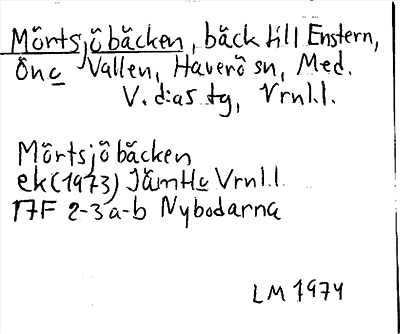 Mörtsjöbäcken, bäck till Enstern,
Önc Vallen, Haverö sn, Med.
V. d:as tg, Vrnl.l.
Mörtsjöbäcken
ek (1973) Jämtlc Vrnl.l.
17F 2-3 a-b Nybodarna
LM 1974